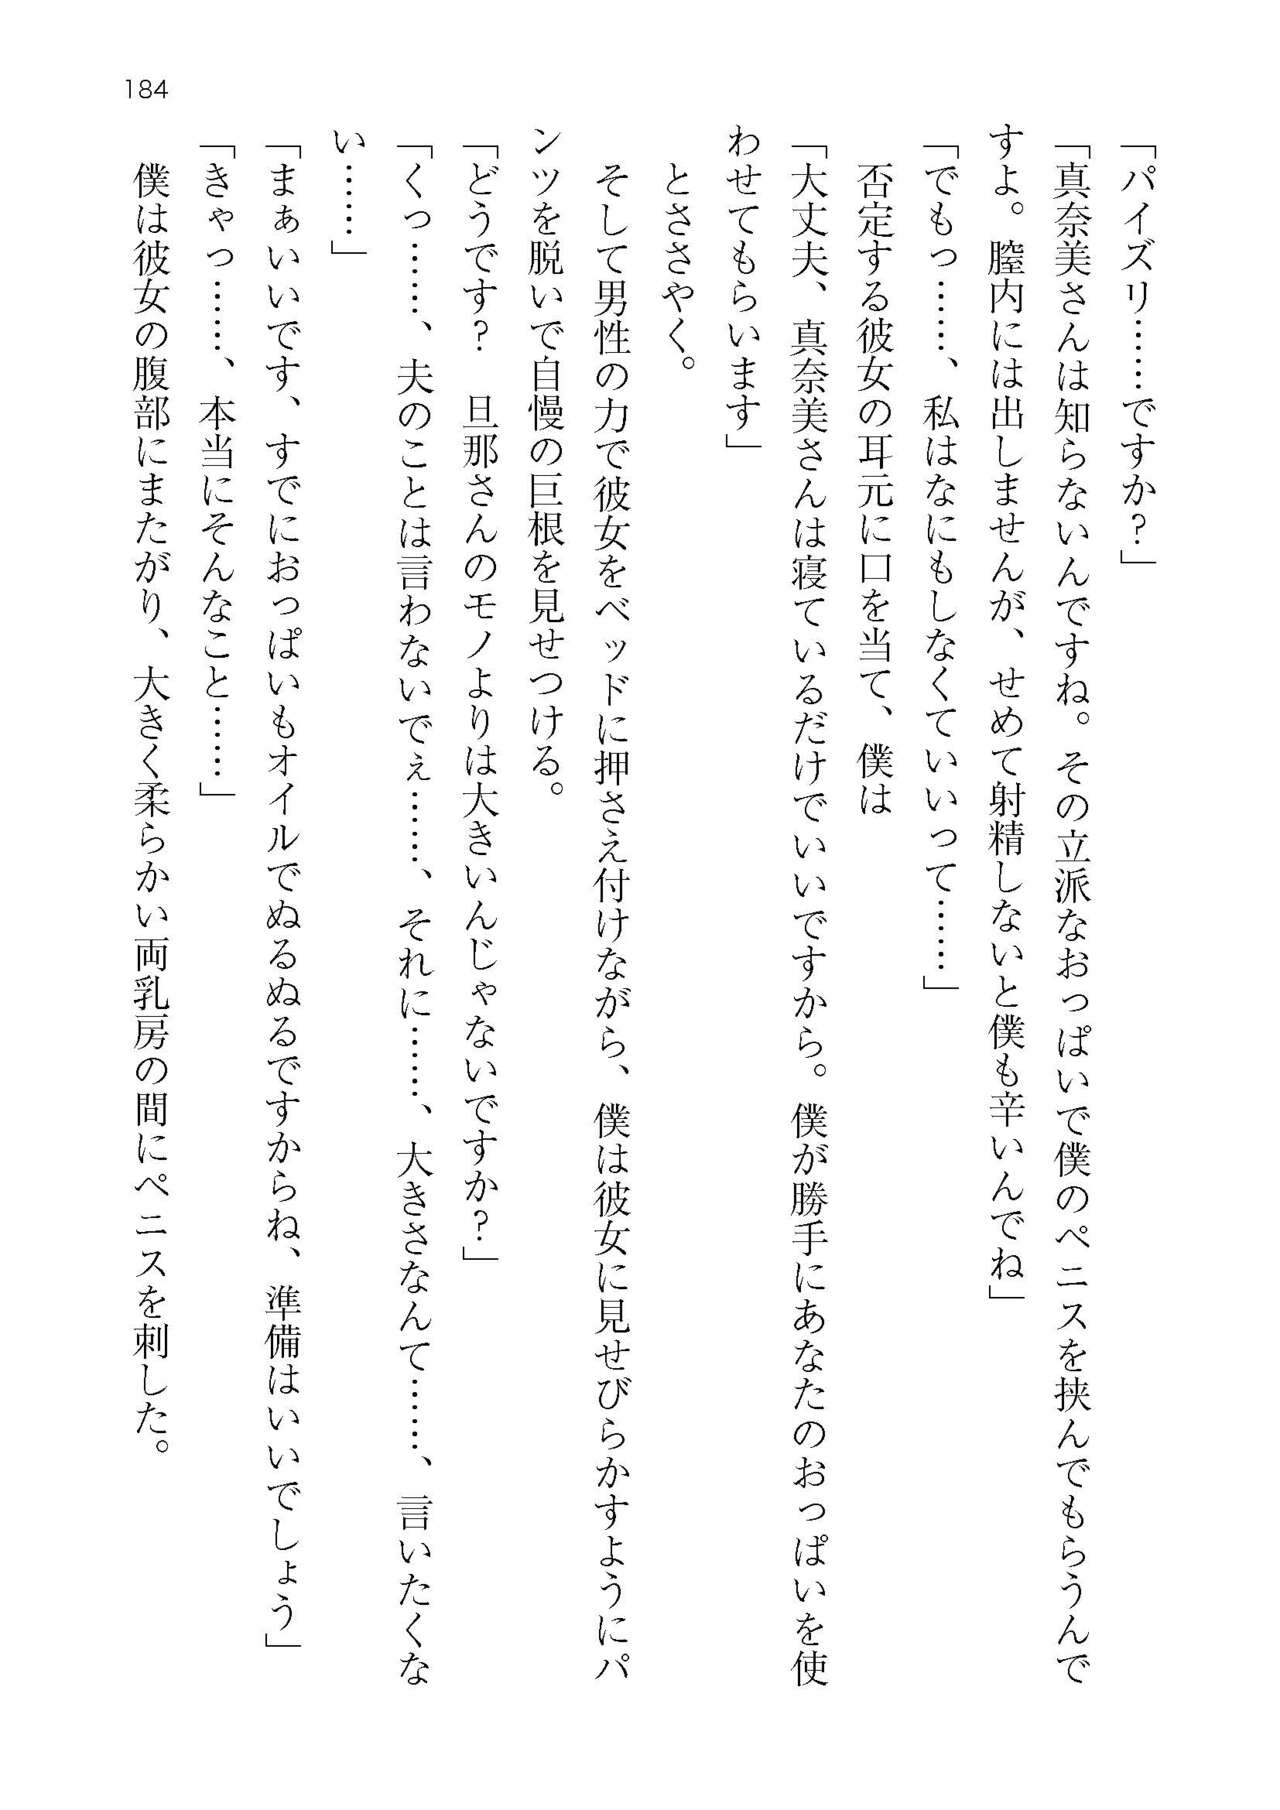 184
「パイズリ……ですか？」
「真奈美さんは知らないんですね。その立派なおっぱいで僕のペニスを挟んでもらうんで
すよ。膣内には出しませんが、せめて射精しないと僕も辛いんでね」
「でもっ……、私はなにもしなくていいって……」
　否定する彼女の耳元に口を当て、僕は
「大丈夫、真奈美さんは寝ているだけでいいですから。僕が勝手にあなたのおっぱいを使
わせてもらいます」
　とささやく。
　そして男性の力で彼女をベッドに押さえ付けながら、僕は彼女に見せびらかすようにパ
ンツを脱いで自慢の巨根を見せつける。
「どうです？　旦那さんのモノよりは大きいんじゃないですか？」
「くっ……、夫のことは言わないでぇ……、それに……、大きさなんて……、言いたくな
い……」
「まぁいいです、すでにおっぱいもオイルでぬるぬるですからね、準備はいいでしょう」
「きゃっ……、本当にそんなこと……」
　僕は彼女の腹部にまたがり、大きく柔らかい両乳房の間にペニスを刺した。